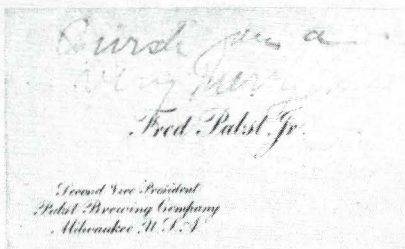 I wish you a
very merry
Fred Pabst, Jr.
Second Vice President
Pabst Brewing Company
Milwaukee U.S.A.